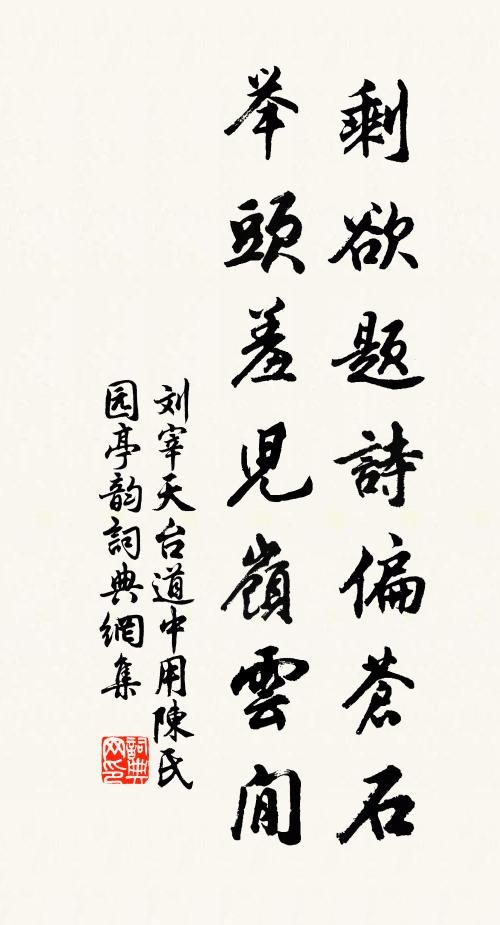 剩欲题詩偏蒼石
举頭羞見嶺雲閒
刘宰天台道中用陳氏
园亭韵詞典網集
詞典网印